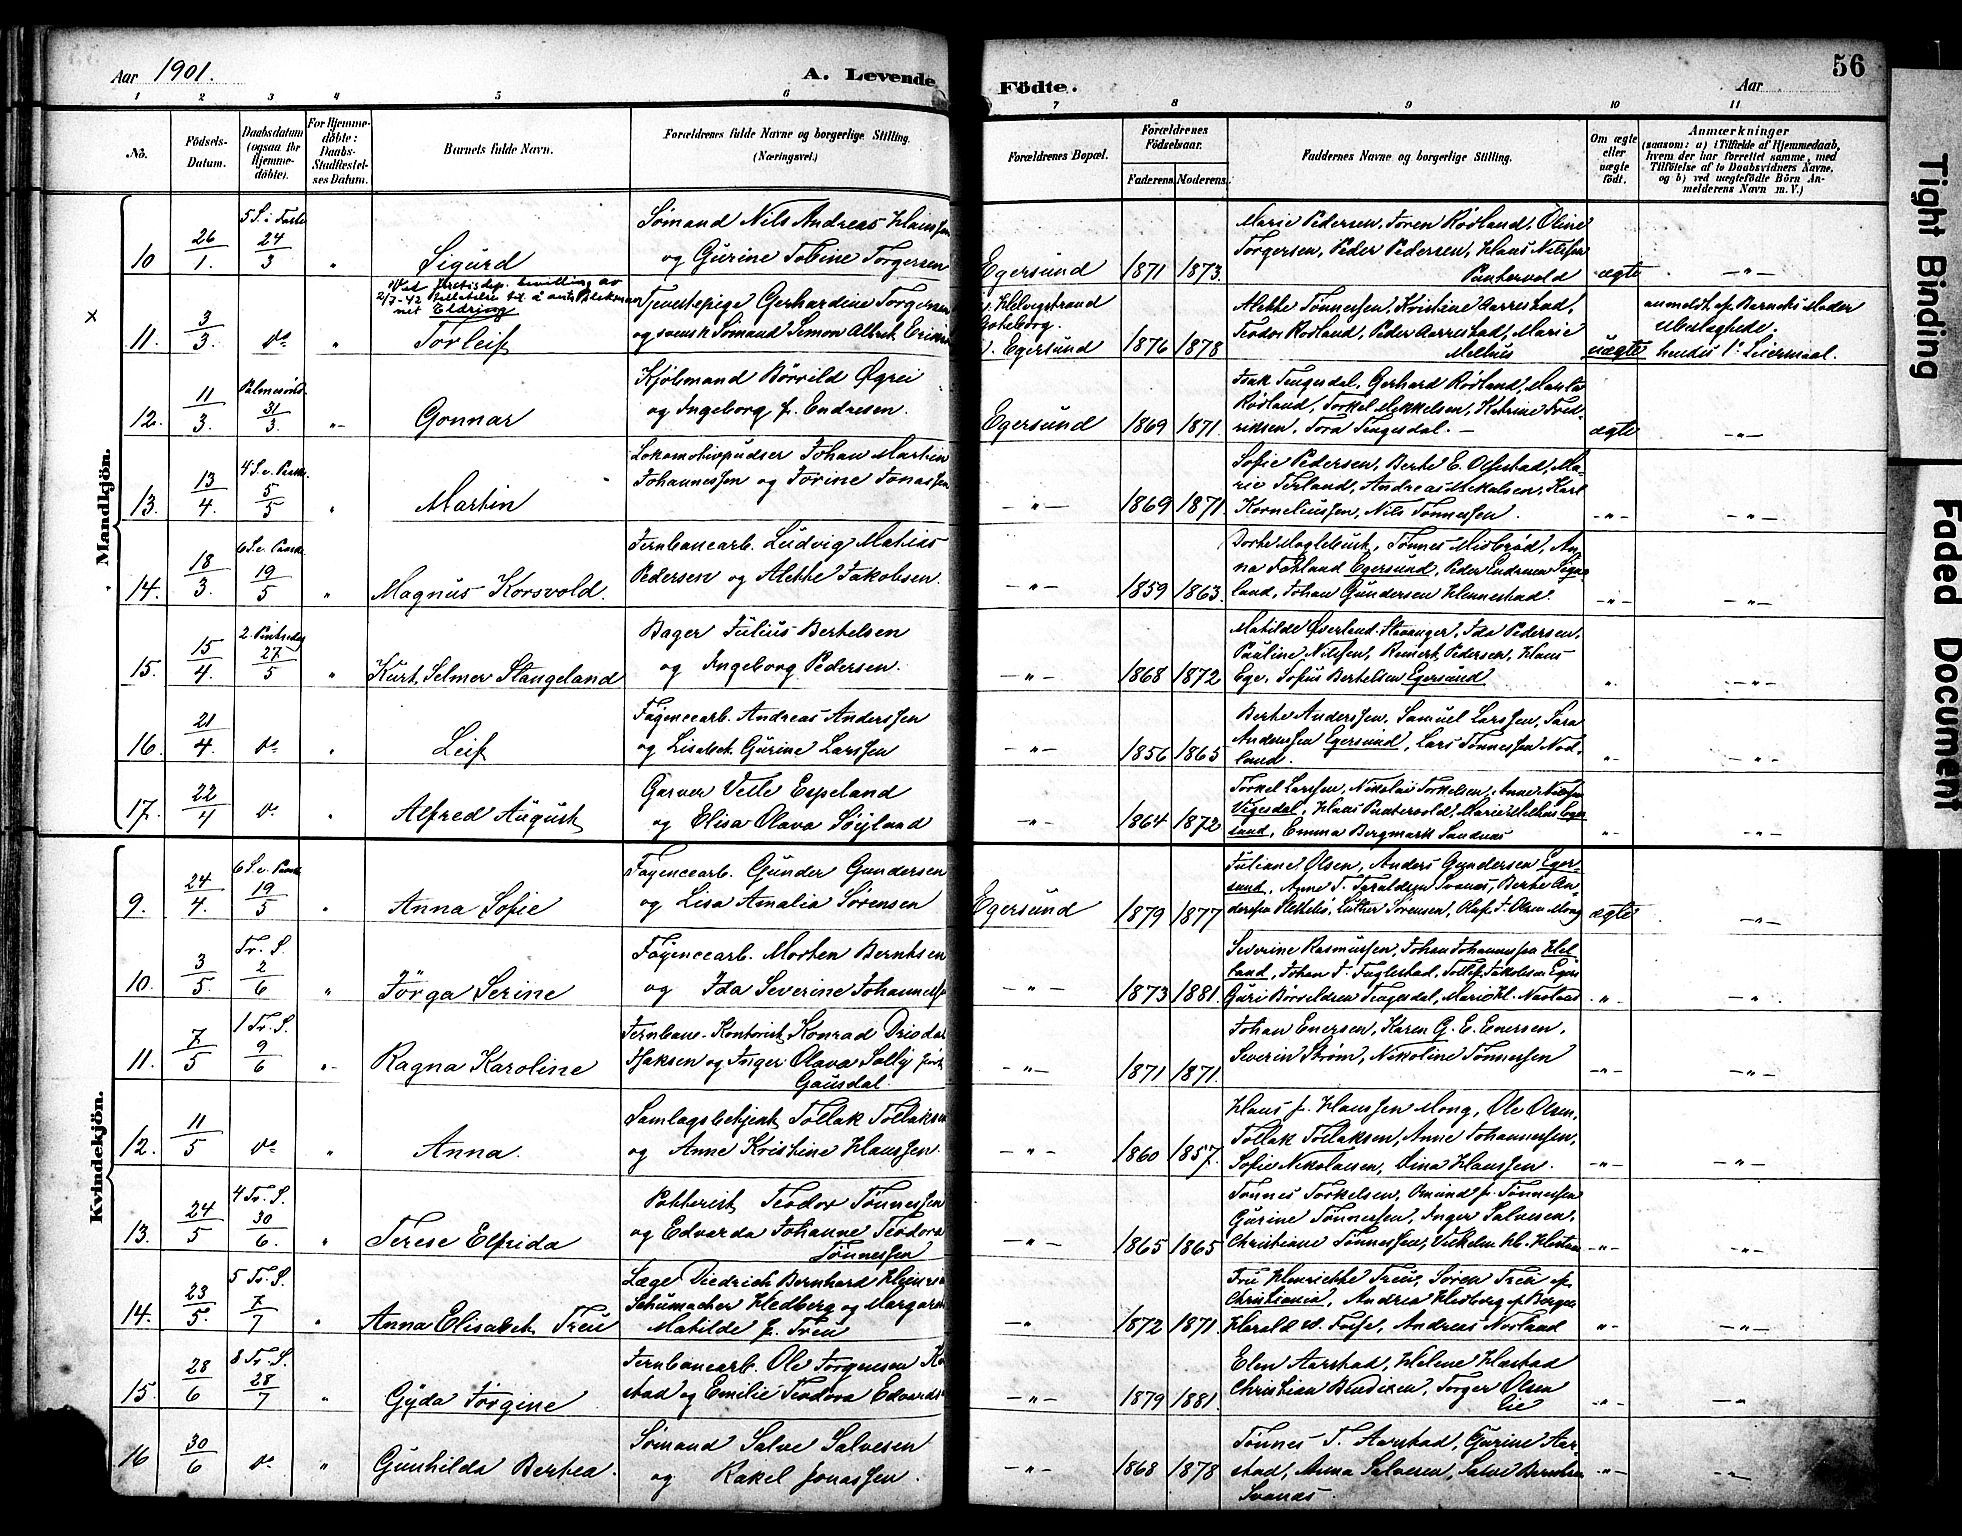 Aar 1901.
A. Levende
Födte.
Aar
56
1 2 3 4 5 6 7 8 9 10 11
No.
Födsels-Datum.
Daabsdatum (ogsaa for Hjemme-döbte).
For Hjemme-döbte: Daabs-Stadfæstel-ses Datum.
Barnets fulde Navn.
Forældrenes fulde Navne og borgerlige Stilling. (Næringsvei.)
Forældrenes Bopæl.
Forældrenes Födselsaar.
Faderens. Moderens.
Faddernes Navne og borgerlige Stilling.
Om ægte eller uægte födt.
Anmærkninger
(saasom: a) i Tilfælde af Hjemmedaab, hvem der har forrettet samme, med Tilföielse af to Daabsvidners Navne, og b) ved uægtefödte Börn An-melderens Navn m. V.)
Mandkjön.
10 26/1. 5 S. i Faste 24/3 " Sigurd
Sømand Nils Andreas Hansen
og Gurine Tobine Torgersen
Egersund 1871 1873.
Marie Pedersen, Søren Rødland, Oline
Torgersen, Peder Pedersen, Hans Nilssen
Puntervold ægte - " -
x 11. 3/3. do "
Torleif
Tjenestepige Gerhardine Torgersen
og svensk Sømand Simon Albert
Göteborg.
Egersund 1876 1878
Alette Tønnessen, Kristine Aarrestad,
Teodor Rødland, Peder Aarrestad, Marie
Melhus uægte
anmeldt af Barnets Moder
hendes 1ste Leiermaal.
12. 11/3. Palmesønd. 31/3. " Gonnar
Kjøbmand Børrild Øgrei
og Ingeborg f. Endresen.
Egersund 1869 1871.
Isak Tengesdal, Gerhard Rødland, Marta
Rødland, Torkel Mikkelsen, Katrine Fred-
riksen, Tora Tengesdal. - ægte - " -
13. 13/4. 4 S. e. Paaske 5/5 " Martin
Lokomotivpudser Johan Martin
Johannessen og Torine Jonassen
- " - 1869 1871.
Sofie Pedersen, Berte E. Olsstad, Ma-
rie Terland, Andreas Mikalsen, Karl
Korneliussen, Nils Tønnessen. - " - - " -
14. 18/3. 6 S. e. Paaske 19/5 " Magnus Korsvold.
Jernbanearb. Ludvig Matias
Pedersen og Alette Jakobsen.
- " - 1859 1863.
Dorte Maglebust, Tønnes Misbrød, An-
na Fotland Egersund, Peder Endresen
land, Johan Gundersen Hennestad. - " - - " -
15. 15/4. 2. Pintsedag 27/5 " Kurt Selmer Stangeland
Bager Julius Bertelsen
og Ingeborg Pedersen.
- " - 1868 1872
Matilde Øverland Stavanger, Ida Pedersen,
Pauline Nilssen, Reinert Pedersen, Hans
Ege, Sofus Bertelsen Egersund " - " -
16. 21/4. do " Leif
Fayencearb. Andreas Anderssen
og Lisabet Gurine Larssen
- " - 1856 1865
Berte Anderssen, Samuel Larssen, Sara
Anderssen Egersund, Lars Tønnessen Nod-
land. " - - " -
17. 22/4 do " Alfred August
Garver Vetle Espeland
og Elisa Olava Søyland
- " - 1864 1872
Torkel Larssen, Nikolai Torkelsen, Anne Nilssen
Vigesdal, Hans Puntervold, Marie Melhus Eger-
sund, Emma Bergmark Sandnæs " - - " -
Kvindekjön.
9. 24/4. 6 S. e. Paaske 19/5 " Anna Sofie
Fayencearb. Gunder Gundersen
og Lisa Amalia Sørensen
Egersund 1879 1877
Juliane Olsen, Anders Gundersen Eger-
sund, Anne T. Taraldsen Svanæs, Berte An-
derssen, Luther Sørensen, Oluf T. Olsen Mong ægte - " -
10. 3/5. Tr. S. 2/6 " Jörga Serine
Fayencearb. Morten Berntsen
og Ida Severine Johannessen
- " - 1873 1881.
Severine Rasmussen, Johan Johannessen Hel-
land, Johan T. Fuglestad, Tollef Jakobsen Egers.
Guri Børseldsen Tengesdal, Marie Kl. Navstad " - "
11. 7/5 1 Tr. S. 9/6 " Ragna Karoline
Jernbane-Kontorist Konrad
Isaksen og Inger Olava Solly født
Gausdal
- " - 1871 1871.
Johan Enersen, Karen G. E. Enersen,
Severin Strøm, Nikoline Tønnessen - " - - " -
12. 11/5 do " Anna.
Samlagsbetjent Tollak Tollaksen
og Anne Kristine Hanssen.
- " - 1860 1857.
Hans f. Hanssen Mong, Ole Olsen,
Tollak Tollaksen, Anne Johannessen,
Sofie Nikolaisen, Dina Hanssen. - " - - " -
13. 24/5 4 Tr. S. 30/6. " Terese Elfrida
Potterist Teodor Tønnessen
og Edvarda Johanne Teodora
Tønnessen
- " - 1865 1865
Tønnes Torkelsen, Omund f. Tønnessen
Gurine Tønnessen, Inger Salvesen,
Christiane Tønnessen, Vilhelm - " - - " -
14. 23/5. 5 Tr. S. 7/7 " Anna Elisabet Treu
Læge Diedrich Bernhard
Schumacher Hedberg og Margarete
Matilde f. Treu
- " 1872 1871
Fru Henriette Treu, Søren Treu af
Christiania, Andrea Hedberg af Bergen
Harald M. Feise, Andreas Nodland " - - " -
15. 28/6 8 Tr. S. 28/7 " Gyda Jørgine
Jernbanearb. Ole Jørgensen
stad og Emilie Teodora
- " - 1879 1881.
Elen Aarstad, Helene Hestad
Christian Bendixen, Torger Olsen
Lie - " - - "
16 30/6 do " Gunhilda Bertea.
Sømand Salve Salvesen
og Rakel Jonassen.
- " - 1868 1878
Tønnes T. Aarstad, Gurine Aar-
stad, Anna Salvesen, Salve Berntsen
Svanæs. - " - - " -
Tight Binding
Faded Document